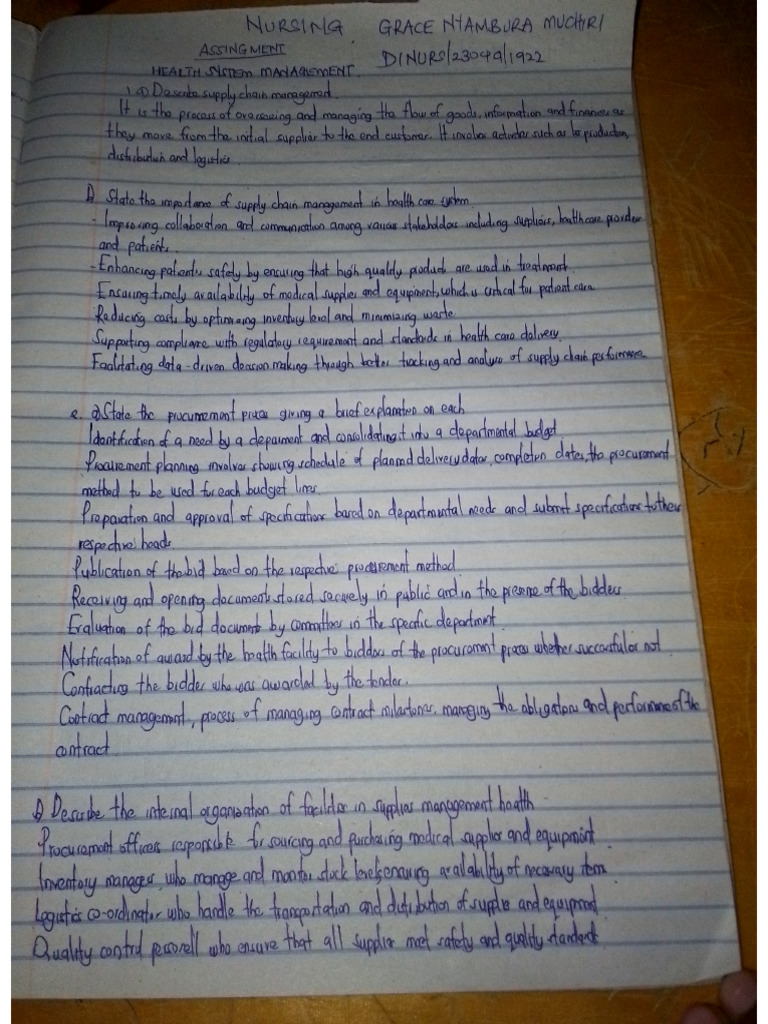 NURSING GRACE NYAMBURA MUCHIRI
ASSINGMENT DINURS/23049/1922
HEALTH SYSTEM MANAGEMENT.
1. a) Describe supply chain management.
It is the process of overseeing and managing the flow of goods, information and finances as
they move from the initial supplier to the end customer. It involves activities such as to production,
distribution and logistics.
b) State the importance of supply chain management in health care system.
- Improving collaboration and communication among various stakeholders including suppliers, healthcare providers
and patients.
- Enhancing patients safety by ensuring that high quality products are used in treatment.
Ensuring timely availability of medical supplies and equipment, which is critical for patient care.
Reducing costs by optimizing inventory level and minimizing waste.
Supporting compliance with regulatory requirement and standards in health care delivery.
Facilitating data-driven decision making through better tracking and analyse of supply chain performance.
2. a) State the procurement process giving a brief explanation on each
Identification of a need by a deparment and consolidating it into a departmental budget
Procurement planning involves showing schedule of planned delivery dates, completion dates, the procurement
method to be used for each budget lines.
Preparation and approval of specifications based on departmental needs and submit specifications to their
respective heads.
Publication of the bid based on the respective procurement method.
Receiving and opening documents stored securely in public and in the presence of the bidders
Evaluation of the bid documents by committees in the specific department.
Notification of award by the health facility to bidders of the procurement process whether successful or not.
Contracting the bidder who was awarded by the tender.
Contract management, process of managing contract milestones, managing the obligations and performance of the
contract
b) Describe the internal organization of facilities in supplies management health
Procurement officers responsible for sourcing and purchasing medical supplies and equipment.
Inventory manager, who manage and monitor stock levels, ensuring availability of necessary item.
Logistics co-ordinator who handle the transportation and distribution of supplies and equipment
Quality control personell who ensure that all supplies met safety and quality standards